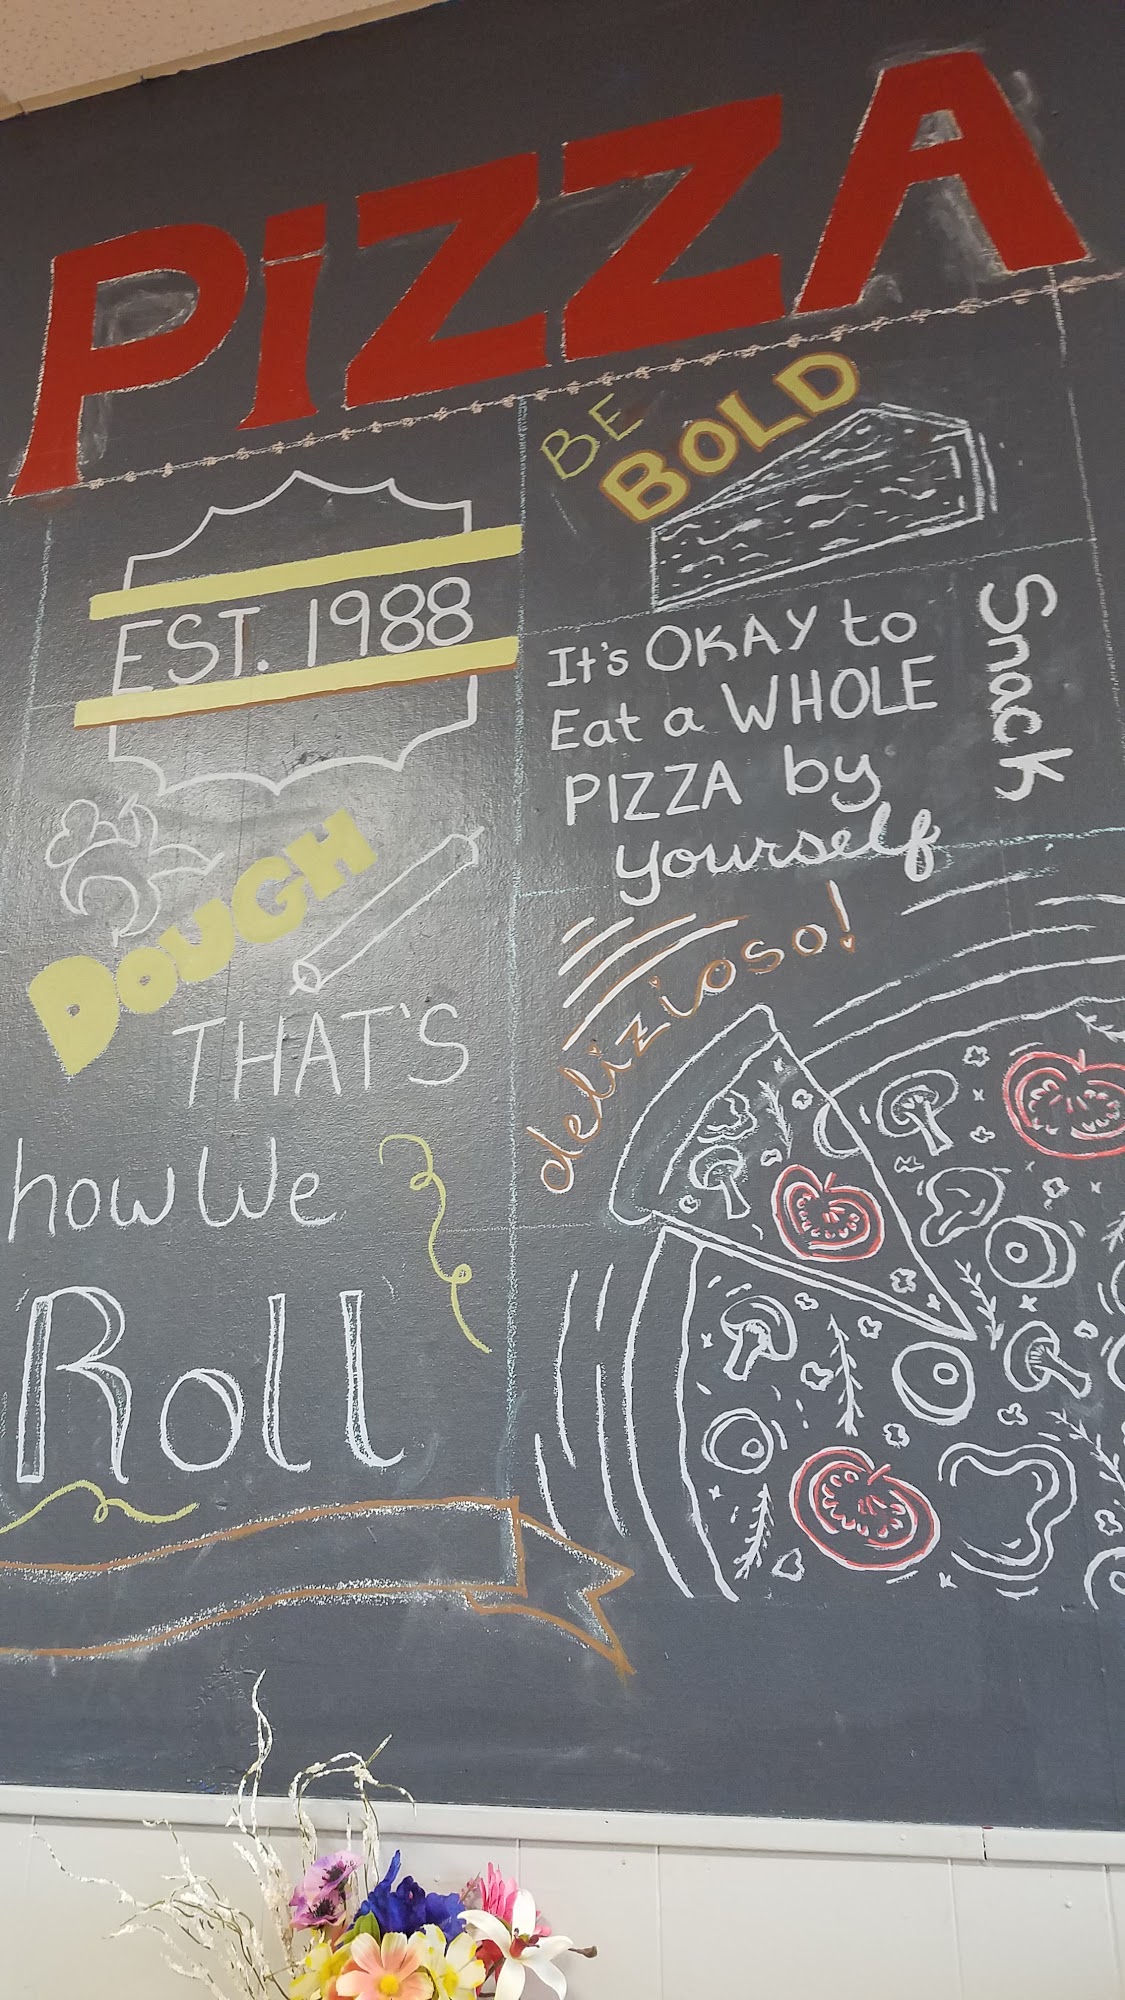 PiZZA
EST. 1988
DOUGH
THAT'S
how We
Roll
BE
BOLD
It's OKAY to
Eat a WHOLE
PIZZA by
yourself
Snack
delizioso!